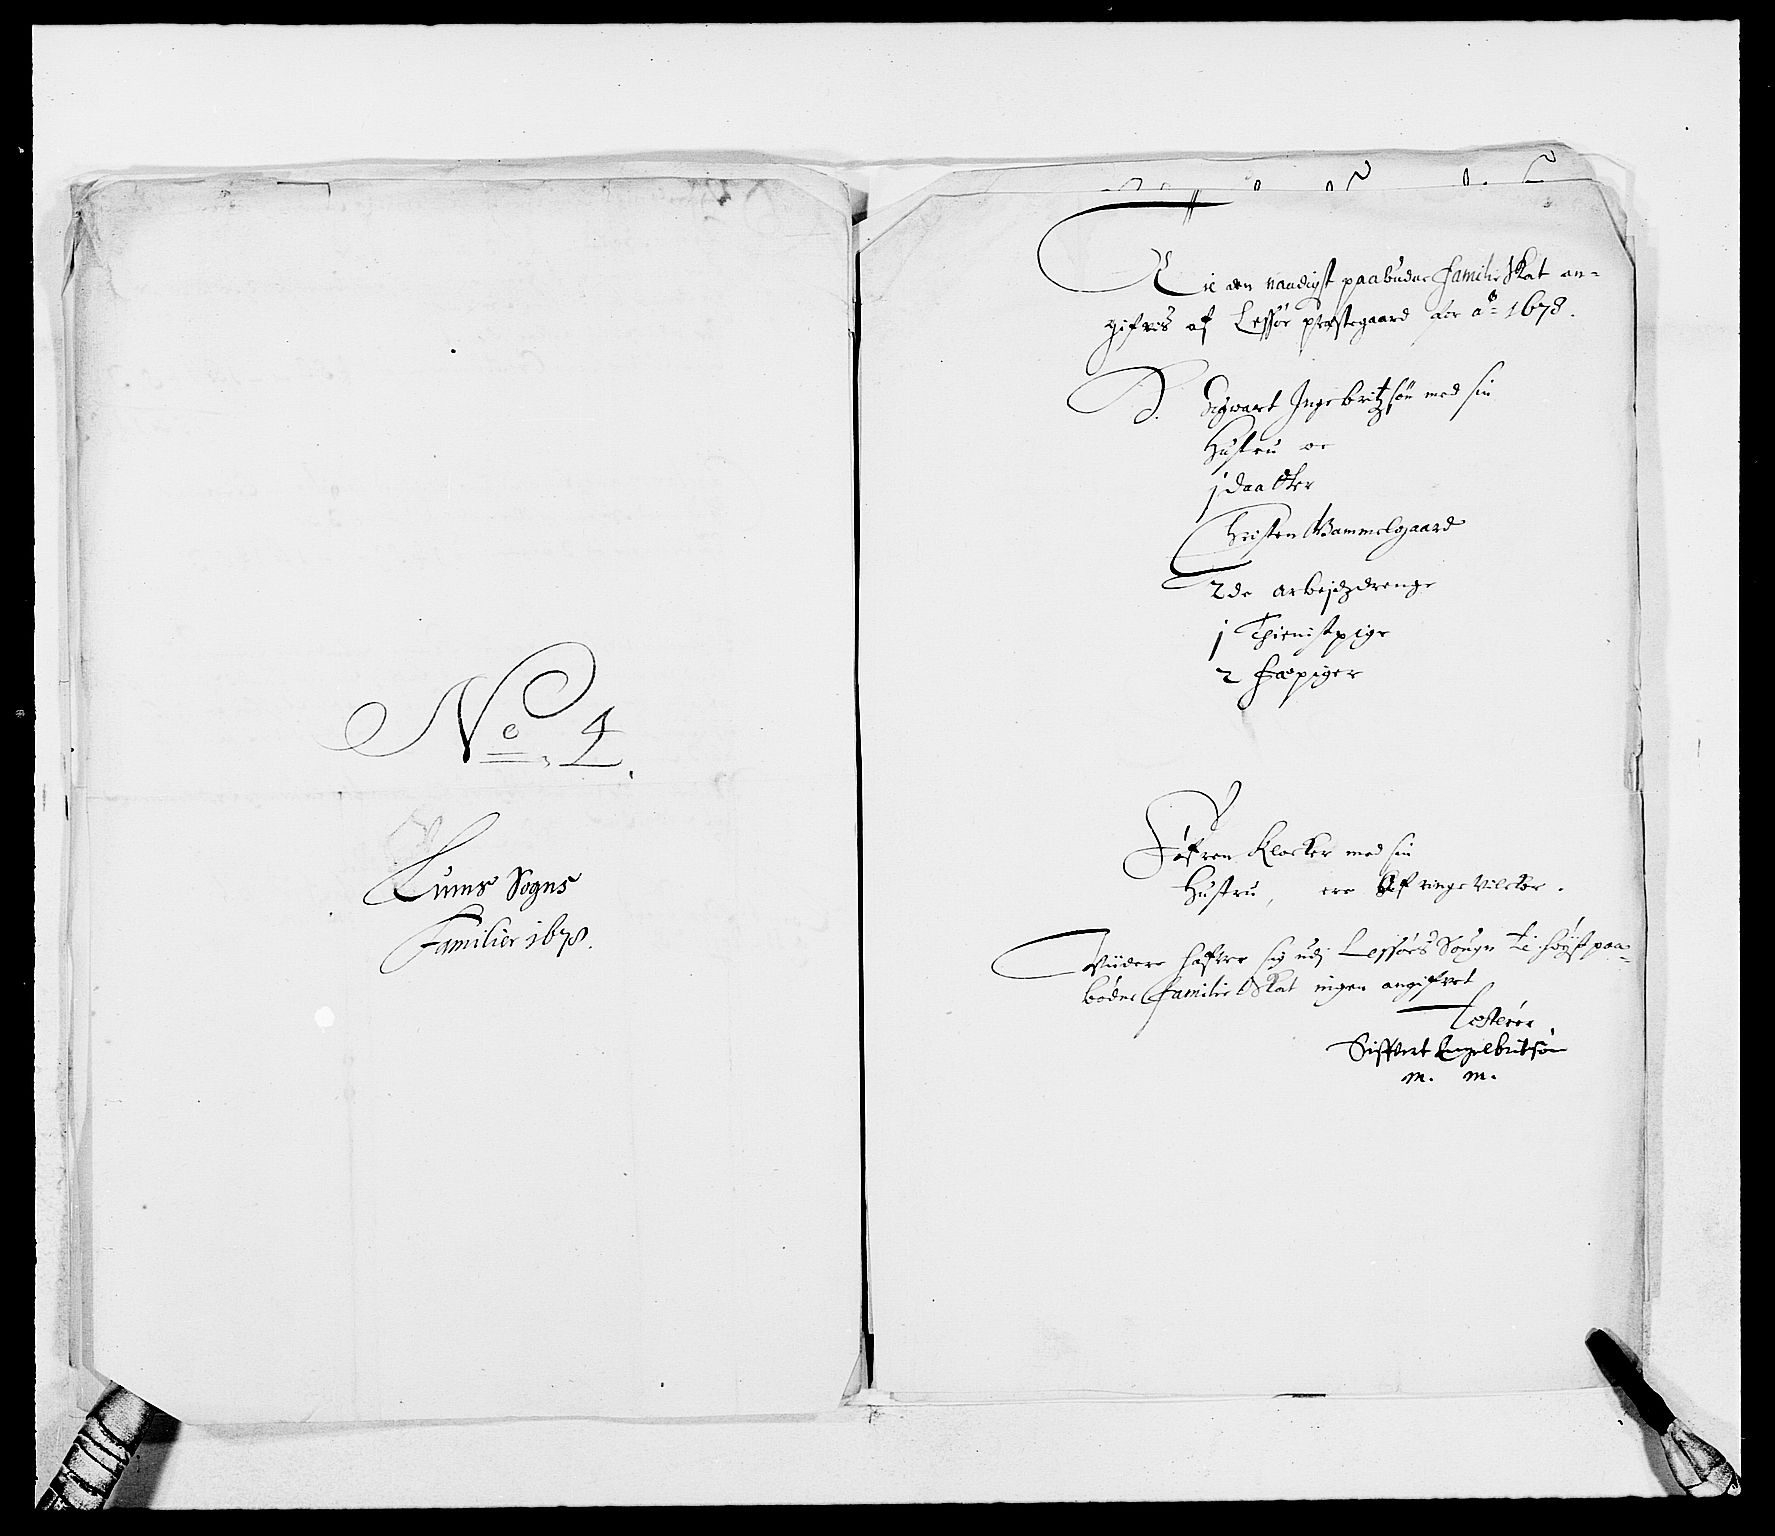 No 4.
Lums Sogns
Familier 1678.
Til den naadigst paabudne familie Skat an-
gifves af Lessøe præstegaard for ao 1678.
D. Sigvart Ingebritzsøn med sin
Hustru oc
1 daatter
Christen Gammelgaard
2de arbejdzdrenge
1 Thienistpige
2 Fæpiger
Søfren Klocker med sin
Hustru, ere af ringe Vilckor.
Viidere hafver sig udj Lessøes Sougn til høyst paa-
bødne familie Skat ingen angifvet
Testerer
Siffvert Engelbritsøn
m. m.